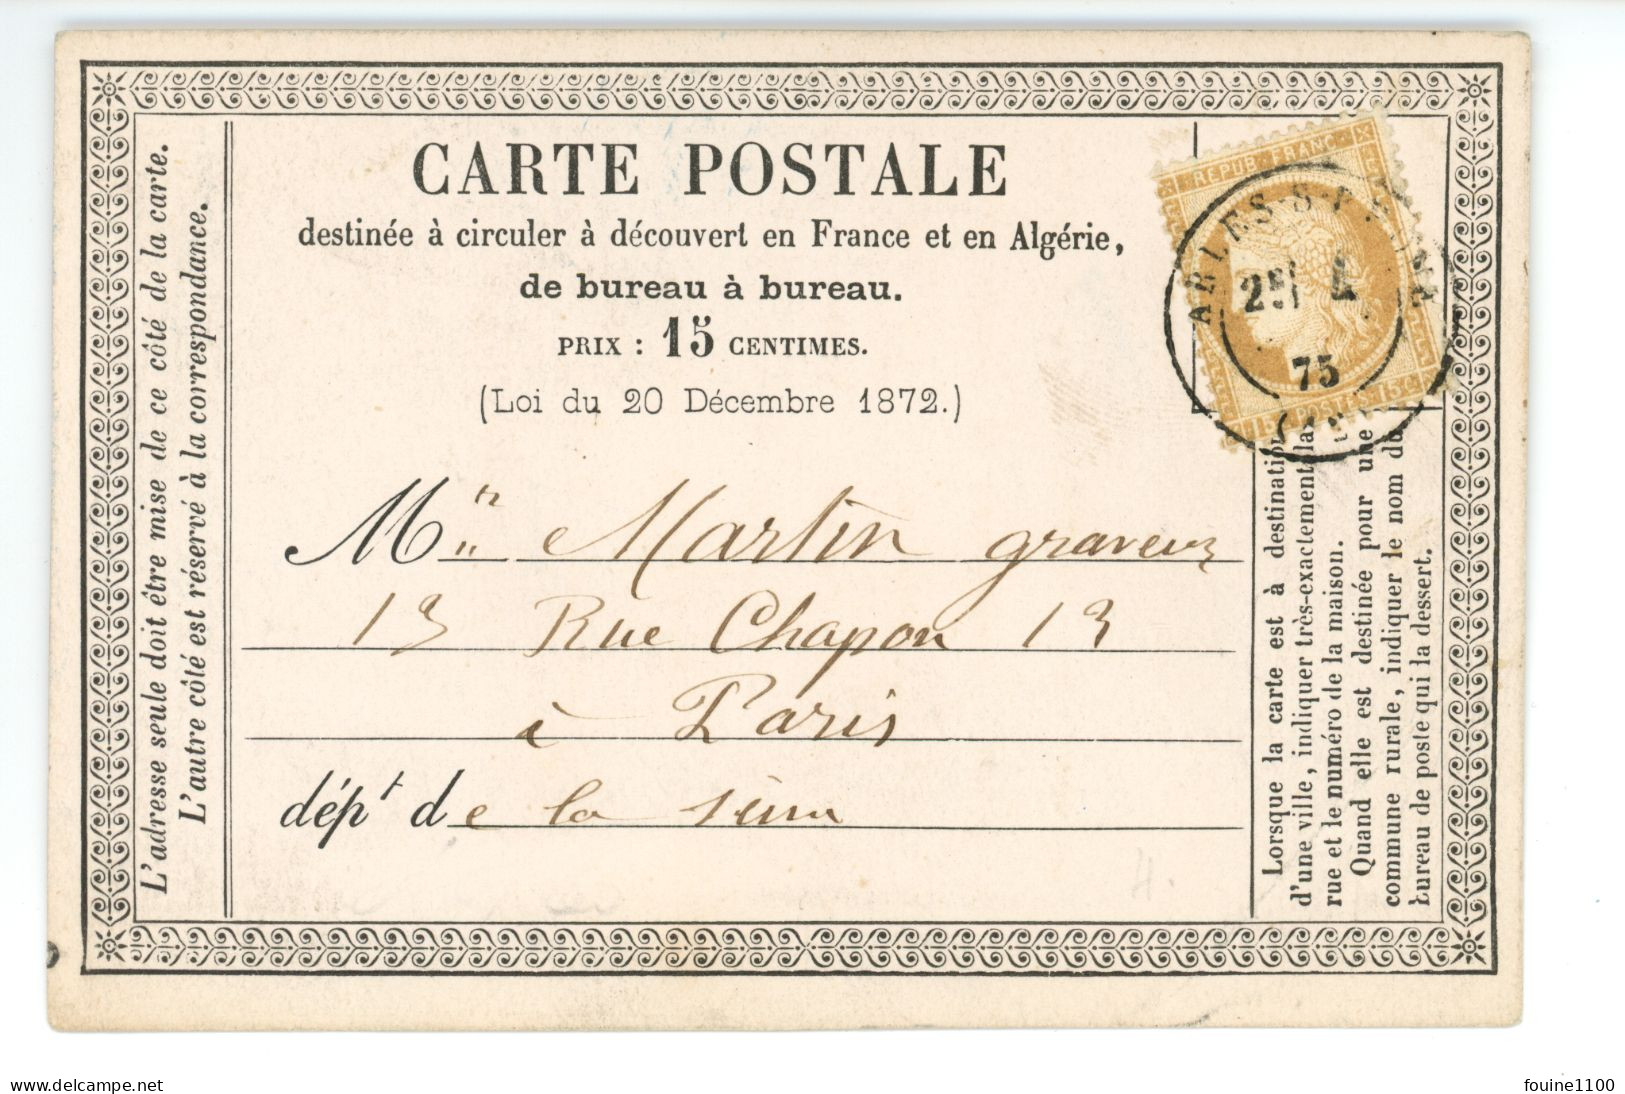 CARTE POSTALE
destinée à circuler à découvert en France et en Algérie,
de bureau à bureau.
PRIX : 15 CENTIMES.
(Loi du 20 Décembre 1872.)
L'adresse seule doit être mise de ce côté de la carte.
L'autre côté est réservé à la correspondance.
REPUB. FRANC.
15 POSTES 15 c.
ARLES-S-RHONE
75
M Martin graveur
13 Rue Chapon 13
à Paris
dépt de la Seine
Lorsque la carte est à destination
d'une ville, indiquer très-exactement la
rue et le numéro de la maison.
Quand elle est destinée pour une
commune rurale, indiquer le nom du
bureau de poste qui la dessert.
delcampe.net
fouine1100